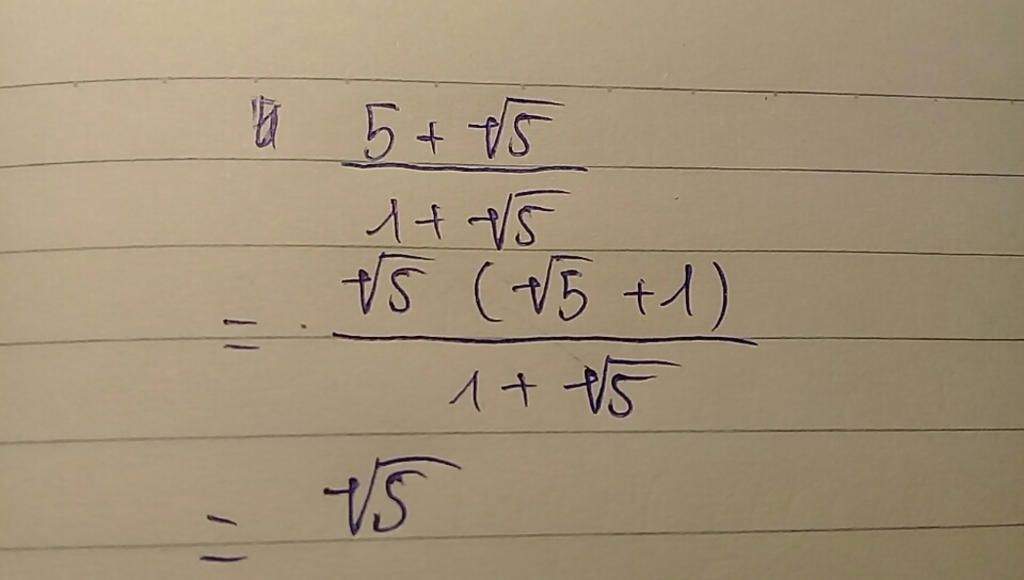 5 + √5
1 + √5
= √5 (√5 + 1)
1 + √5
= √5